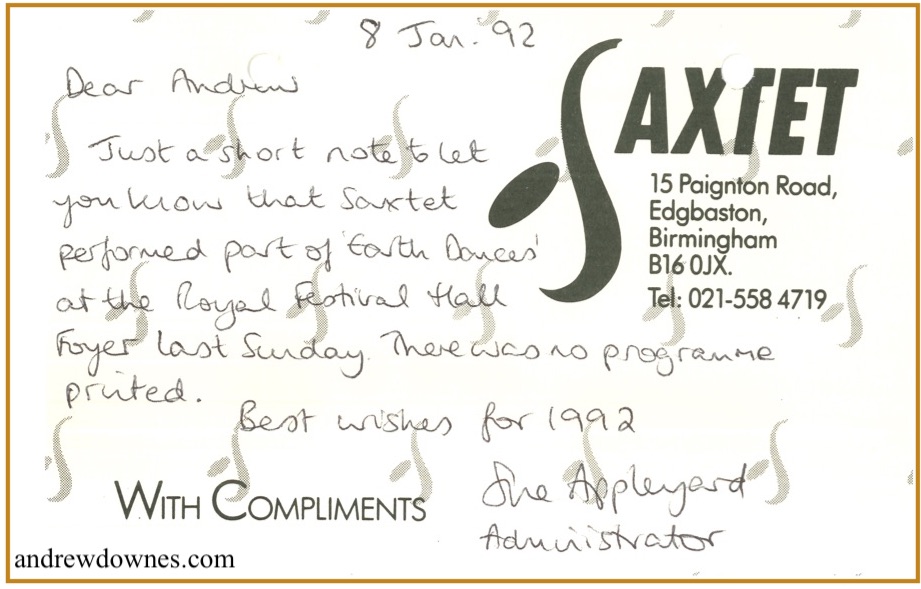 8 Jan. 92
SAXTET
15 Paignton Road,
Edgbaston,
Birmingham
B16 0JX.
Tel: 021-558 4719
Dear Andrew
Just a short note to let
you know that Saxtet
performed part of 'Earth Dances'
at the Royal Festival Hall
Foyer last Sunday. There was no programme
printed.
Best wishes for 1992
Sue Appleyard
Administrator
WITH COMPLIMENTS
andrewdownes.com